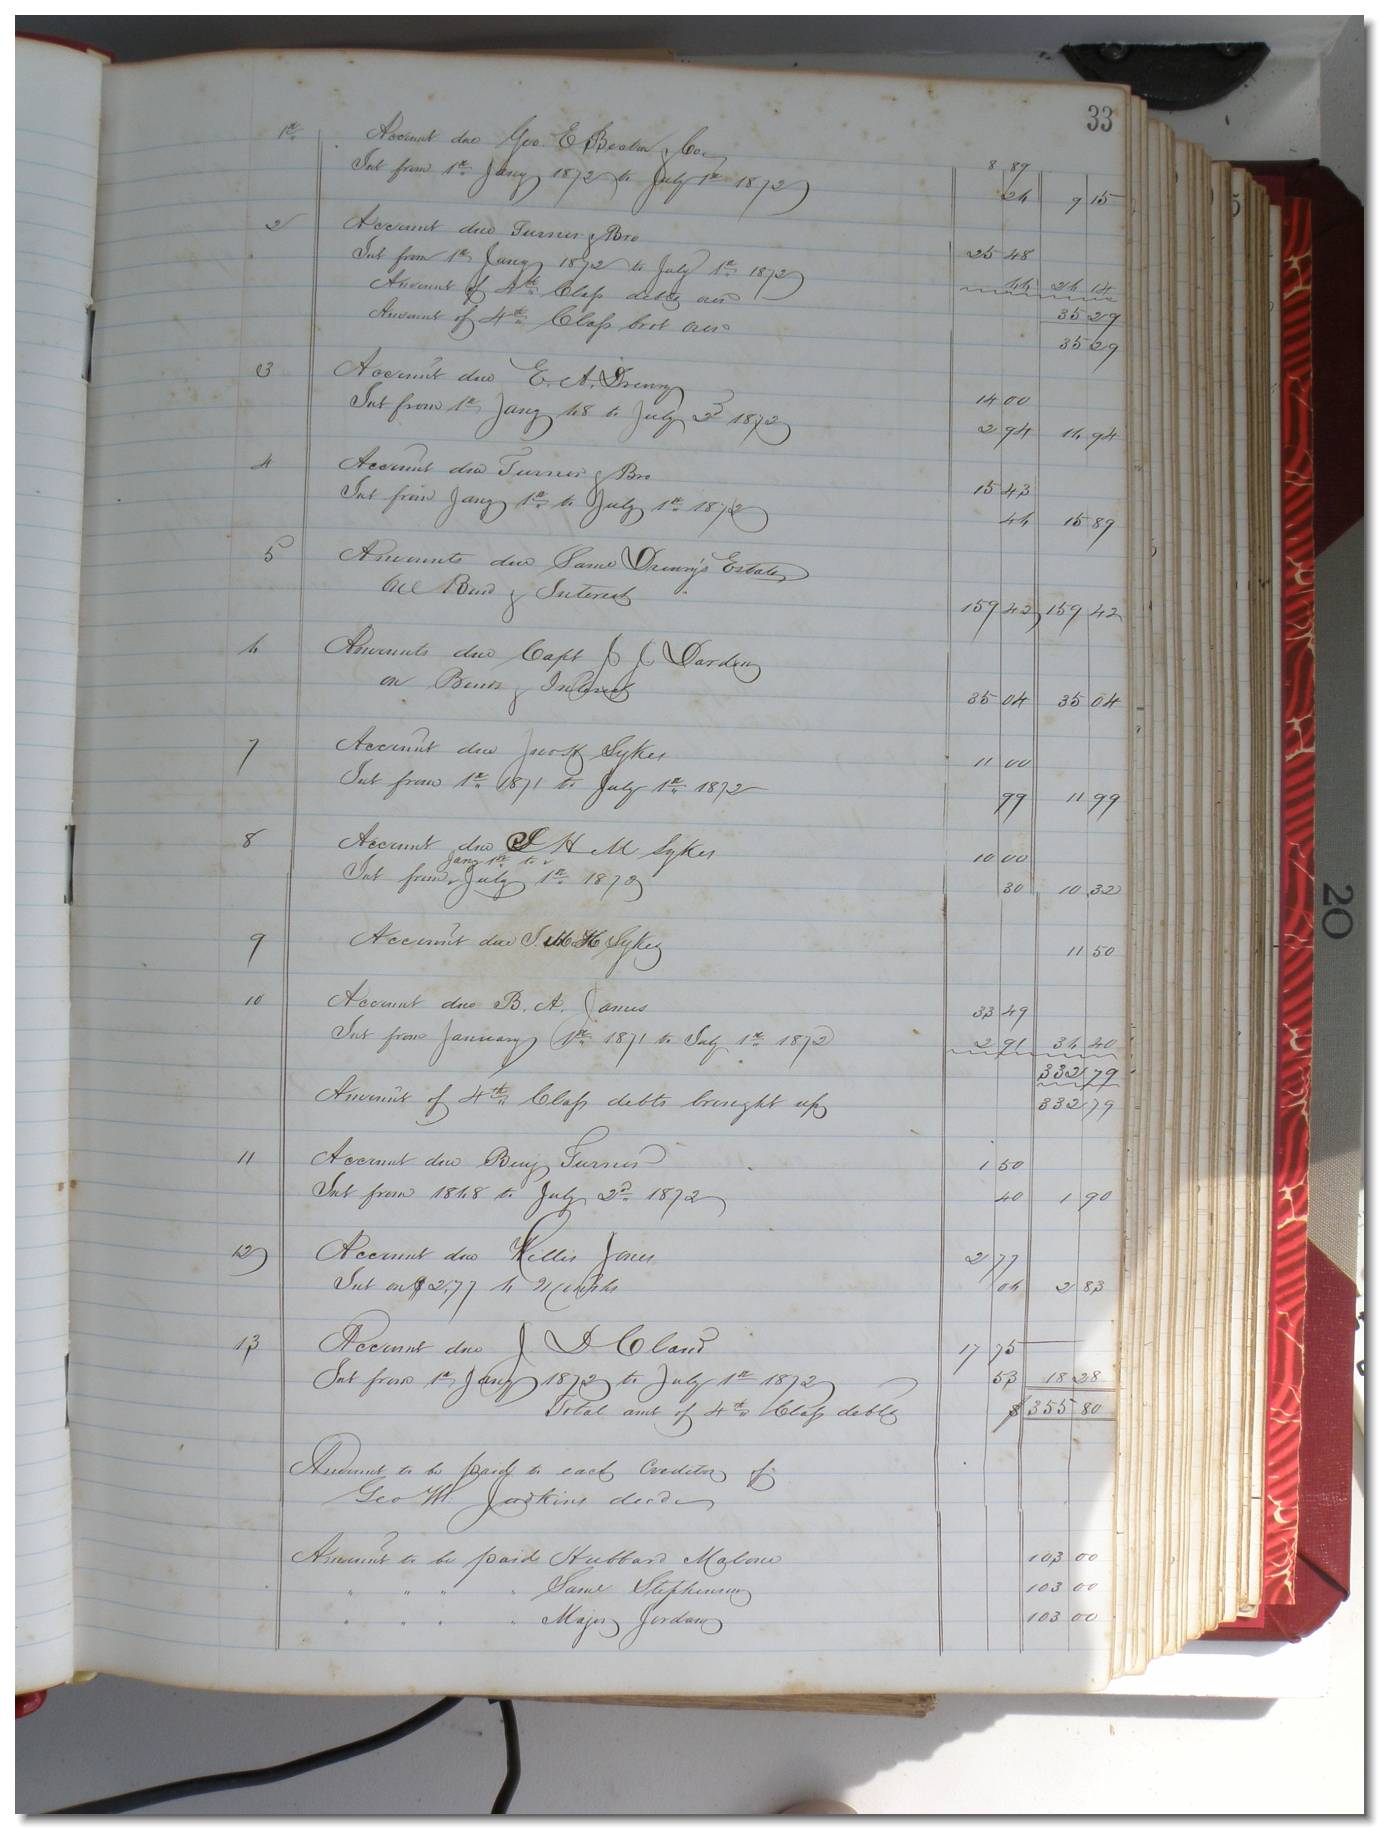 33
1st Account due Geo. E Beaton & Co
Int from 1st Jany 1872 to July 1st 1872 8 89
26 9 15
2 Account due Turner & Bro
Int from 1st Jany 1872 to July 1st 1872 25 48
Amount of 4th Class debts over 66 26 14
Amount of 4th Class brot over 35 29
35 29
3 Account due E. A. Drewry
Int from 1st Jany 68 to July 2d 1872 14 00
2 94 16 94
4 Account due Turner & Bro
Int from Jany 1st to July 1st 1872 15 43
46 15 89
5 Amounts due Saml Drewry's Estate
on Bond & Interest
159 42 159 42
6 Amounts due Capt J J Darden
on Bonds & Interest 35 04 35 04
7 Account due Sykes
Int from 1st 1871 to July 1st 1872 11 00
99 11 99
8 Account due J H M Sykes
Jany 1st to 10 00
Int from July 1st 1872 30 10 32
9 Account due J. M H Sykes 11 50
10 Account due B. A. James
Int from January 1st 1871 to July 1st 1872 33 49
2 91 36 40
332 79
Amount of 4th Class debts brought up 332 79
11 Account due Benj Turner 1 50
Int from 1868 to July 2d 1872 40 1 90
12 Account due Willis Jones 2 77
Int on $2.77 6 Months 06 2 83
13 Account due J D Cland 17 75
Int from 1st Jany 1872 to July 1st 1872 53 18 28
Total amt of 4th Class debts $355 80
Amount to be paid to each Creditor of
Geo W. Judkins decd
Amount to be paid Hubbard Malone 103 00
" " " " Saml Stephenson 103 00
" " " " Major Jordan 103 00
20